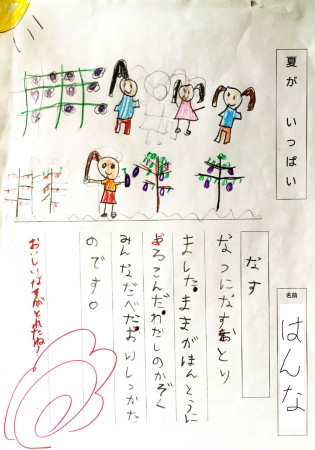 夏が いっぱい
名前
はんな
なす
なつになすをとり
ました。ままがほんとうに
よろこんだ。わたしのかぞく
みんなだべだ。おいしっかた
のです。
おいしいなすがとれたね!